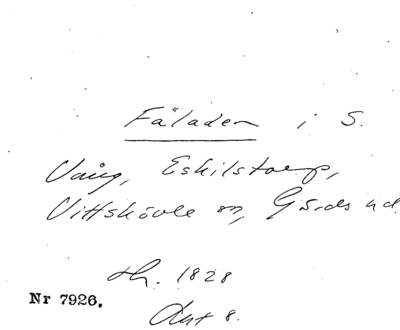 Fäladen i S.
Vång, Eskilstorp,
Vittskövle sn, Gärds hd
th. 1828
Nr 7926.
Akt 8.